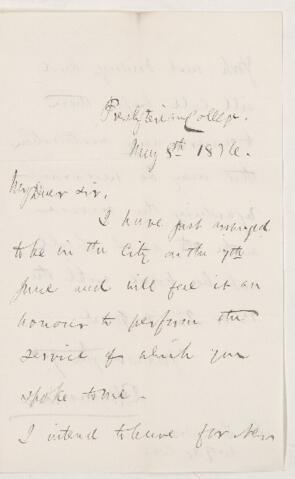 Presbyterian College.
May 8th 1876.
My Dear Sir,
I have just arranged
to be in the City on the 7th
June and will feel it an
honour to perform the
service of which you
spoke to me.
I intend to leave for New